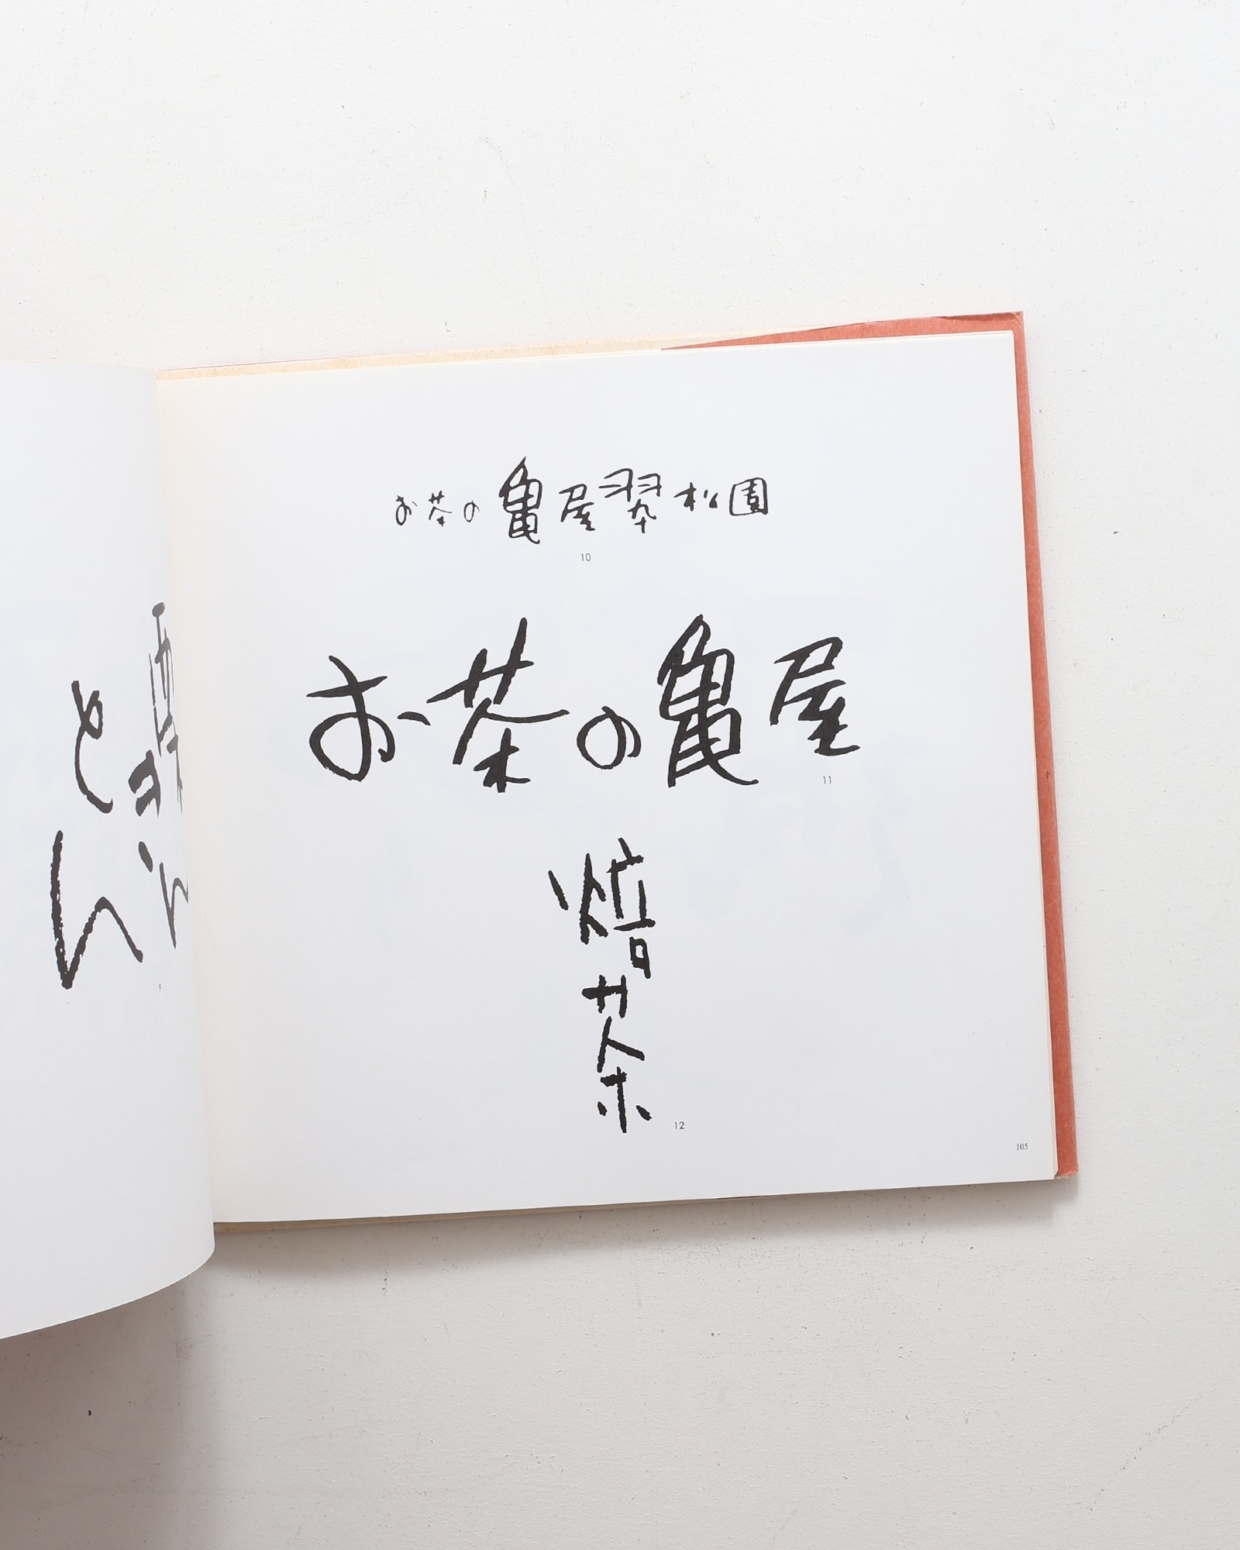 とん
お茶の亀屋翠松園
10
お茶の亀屋
11
焙茶
12
105